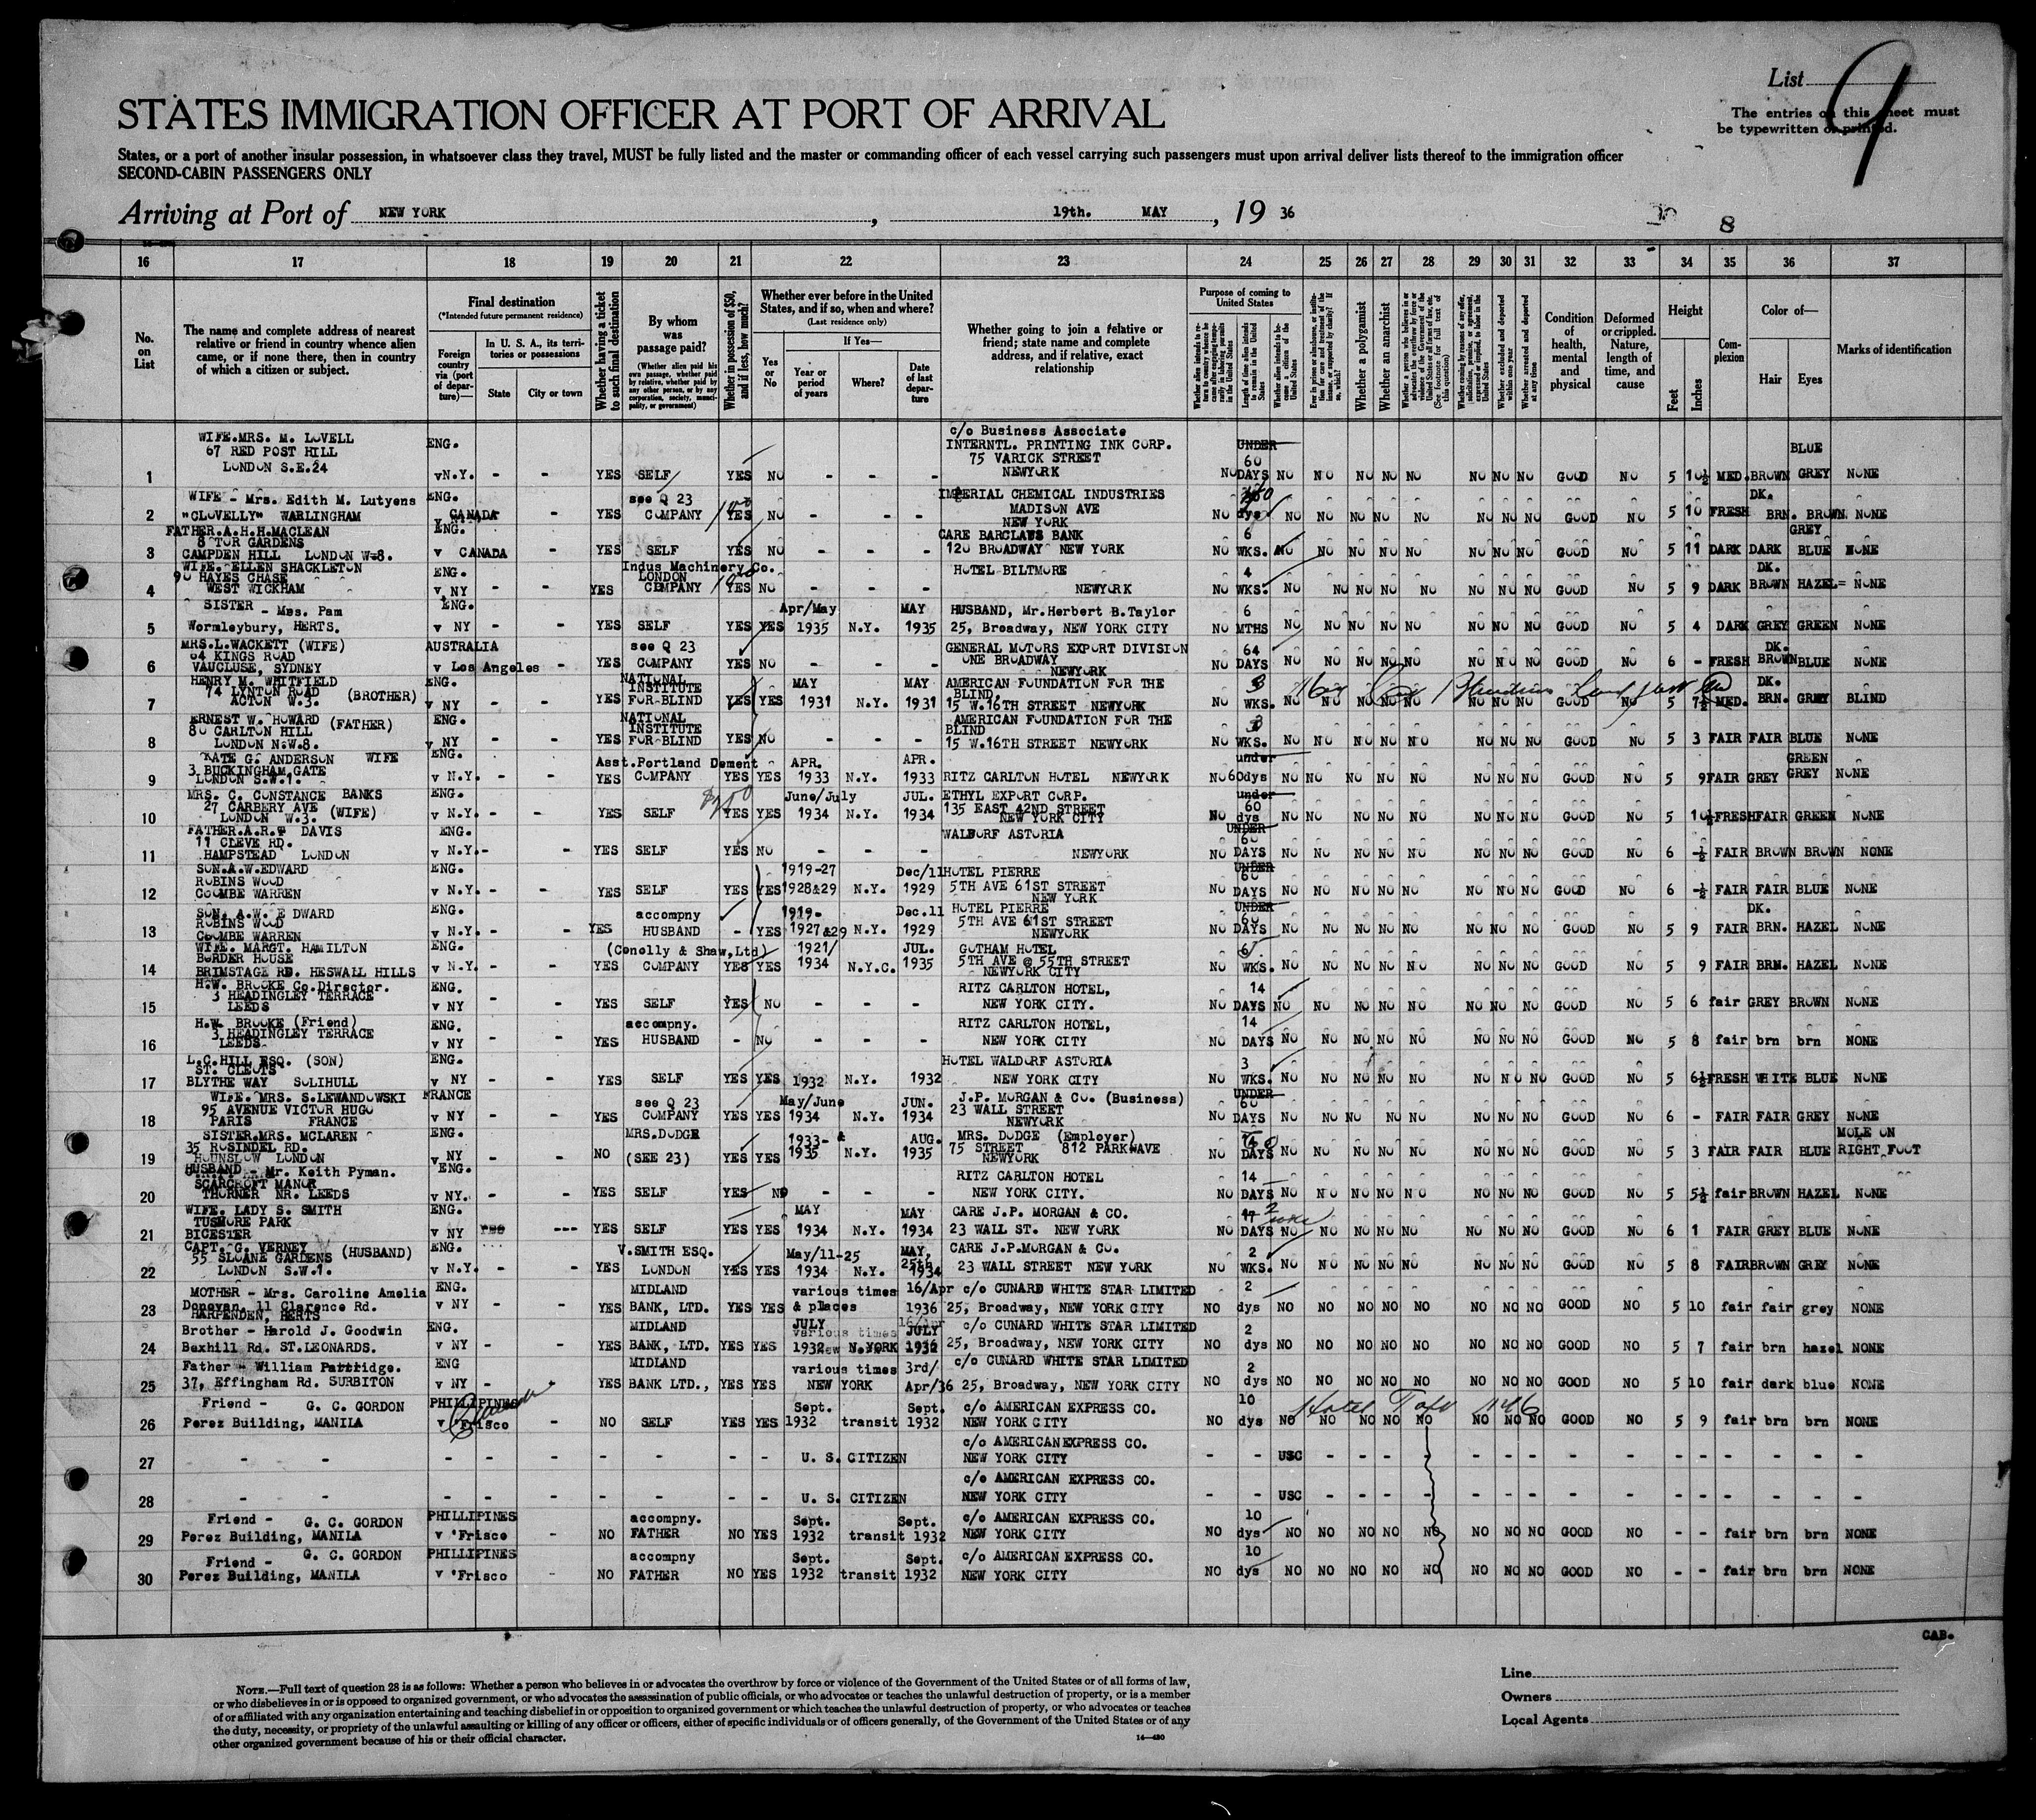 List 9
STATES IMMIGRATION OFFICER AT PORT OF ARRIVAL
The entries on this sheet must
be typewritten or printed.
States, or a port of another insular possession, in whatsoever class they travel, MUST be fully listed and the master or commanding officer of each vessel carrying such passengers must upon arrival deliver lists thereof to the immigration officer
SECOND-CABIN PASSENGERS ONLY
Arriving at Port of NEW YORK, 19th. MAY, 19 36
8
16 17 18 19 20 21 22 23 24 25 26 27 28 29 30 31 32 33 34 35 36 37
No. on List
The name and complete address of nearest relative or friend in country whence alien came, or if none there, then in country of which a citizen or subject.
Final destination
(*Intended future permanent residence)
Foreign country via (port of departure)—
In U. S. A., its territories or possessions
State
City or town
Whether having a ticket to such final destination
By whom was passage paid?
(Whether alien paid his own passage, whether paid by relative, whether paid by any other person, or by any corporation, society, municipality, or government)
Whether in possession of $50, and if less, how much?
Whether ever before in the United States, and if so, when and where?
(Last residence only)
Yes or No
If Yes—
Year or period of years
Where?
Date of last departure
Whether going to join a relative or friend; state name and complete address, and if relative, exact relationship
Purpose of coming to United States
Length of time alien intends to remain in the United States
Whether alien intends to become a citizen of the United States
Whether a polygamist
Whether an anarchist
(See footnote for full text of this question)
Whether excluded and deported within one year
Whether arrested and deported at any time
Condition of health, mental and physical
Deformed or crippled. Nature, length of time, and cause
Height
Feet
Inches
Complexion
Color of—
Hair
Eyes
Marks of identification
1 WIFE.MRS. M. LOVELL 67 RED POST HILL LONDON S.E.24 ENG. vN.Y. - - YES SELF YES NO - - - c/o Business Associate INTERNTL. PRINTING INK CORP. 75 VARICK STREET NEWYORK NO UNDER 60 DAYS NO NO NO NO NO NO NO NO GOOD NO 5 10½ MED. BROWN BLUE GREY NONE
2 WIFE - Mrs. Edith M. Lutyens "CLOVELLY" WARLINGHAM ENG. v CANADA - YES see Q 23 COMPANY YES NO - - - IMPERIAL CHEMICAL INDUSTRIES MADISON AVE NEW YORK NO dys NO NO NO NO NO NO NO NO GOOD NO 5 10 FRESH DK. BRN. BROWN NONE
3 FATHER.A.H.H.MACLEAN 8 TOR GARDENS CAMPDEN HILL LONDON W=8. ENG. v CANADA - YES SELF YES NO - - - CARE BARCLAYS BANK 120 BROADWAY NEW YORK NO 6 WKS. NO NO NO NO NO NO NO NO GOOD NO 5 11 DARK DARK GREY BLUE NONE
4 WIFE. ELLEN SHACKLETON 90 HAYES CHASE WEST WICKHAM ENG. v NY - - YES Indus Machinery Co. LONDON COMPANY YES NO - - - HOTEL BILTMORE NEWYORK NO 4 WKS. NO NO NO NO NO NO NO NO GOOD NO 5 9 DARK DK. BROWN HAZEL= NONE
5 SISTER - Mrs. Pam Wormleybury, HERTS. ENG. v NY - - YES SELF YES YES Apr/May 1935 N.Y. MAY 1935 HUSBAND, Mr.Herbert B.Taylor 25, Broadway, NEW YORK CITY NO 6 MTHS NO NO NO NO NO NO NO NO GOOD NO 5 4 DARK GREY GREEN NONE
6 MRS.L.WACKETT (WIFE) 64 KINGS ROAD VAUCLUSE, SYDNEY AUSTRALIA v Los Angeles - YES see Q 23 COMPANY YES NO - - - GENERAL MOTORS EXPORT DIVISION ONE BROADWAY NEWYORK NO 64 DAYS NO NO NO NO NO NO NO NO GOOD NO 6 - FRESH DK. BROWN BLUE NONE
7 HENRY M. WHITFIELD 74 LYNTON ROAD (BROTHER) ACTON W.3. ENG. v NY - - YES NATIONAL INSTITUTE FOR-BLIND YES YES MAY 1931 N.Y. MAY 1931 AMERICAN FOUNDATION FOR THE BLIND, 15 W.16TH STREET NEWYORK NO 3 WKS. NO NO NO NO NO NO NO NO GOOD NO 5 7½ MED. DK. BRN. GREY BLIND
8 ERNEST W. HOWARD (FATHER) 80 CARLTON HILL LONDON N.W.8. ENG. v NY - - YES NATIONAL INSTITUTE FOR-BLIND YES NO - - - AMERICAN FOUNDATION FOR THE BLIND 15 W.16TH STREET NEWYORK NO 3 WKS. NO NO NO NO NO NO NO NO GOOD NO 5 3 FAIR FAIR BLUE NONE
9 KATE G. ANDERSON WIFE 3 BUCKINGHAM GATE LONDON S.W.1. ENG. v N.Y. - - YES Asst.Portland Cement COMPANY YES YES APR. 1933 N.Y. APR. 1933 RITZ CARLTON HOTEL NEWYORK NO under 60dys NO NO NO NO NO NO NO NO GOOD NO 5 9 FAIR GREY GREEN GREY NONE
10 MRS. C. CONSTANCE BANKS 27 CARBERY AVE (WIFE) LONDON W.3. ENG. v N.Y.- - YES SELF YES YES June/July 1934 N.Y. JUL. 1934 ETHYL EXPORT CORP. 135 EAST 42ND STREET NEW YORK CITY NO under 60 dys NO NO NO NO NO NO NO NO GOOD NO 5 10½ FRESH FAIR GREEN NONE
11 FATHER.A.R.T DAVIS 11 CLEVE RD. HAMPSTEAD LONDON ENG. v N.Y.- - YES SELF YES NO - - - WALDORF ASTORIA NEWYORK NO UNDER 60 DAYS NO NO NO NO NO NO NO NO GOOD NO 6 -½ FAIR BROWN BROWN NONE
12 SON.A.W.EDWARD ROBINS WOOD COOMBE WARREN ENG. v N.Y.- - YES SELF YES YES 1919-27 1928&29 N.Y. Dec/11 1929 HOTEL PIERRE 5TH AVE 61ST STREET NEW YORK NO UNDER 60 DAYS NO NO NO NO NO NO NO NO GOOD NO 6 -½ FAIR FAIR BLUE NONE
13 SON. A.W. E DWARD ROBINS WOOD COOMBE WARREN ENG. v N.Y.- - YES accompny HUSBAND - YES 1919- 1927&29 N.Y. Dec.11 1929 HOTEL PIERRE 5TH AVE 61ST STREET NEWYORK NO UNDER 60 DAYS NO NO NO NO NO NO NO NO GOOD NO 5 9 FAIR DK. BRN. HAZEL NONE
14 WIFE. MARGT. HAMILTON BORDER HOUSE BRIMSTAGE RD. HESWALL HILLS ENG. v N.Y. - - YES (Conolly & Shaw,Ltd) COMPANY YES YES 1921/ 1934 N.Y.C. JUL. 1935 GOTHAM HOTEL 5TH AVE @ 55TH STREET NEWYORK CITY NO WKS. NO NO NO NO NO NO NO NO GOOD NO 5 9 FAIR BRN. HAZEL NONE
15 H.W. BROOKE Co.Director. 3 HEADINGLEY TERRACE LEEDS ENG. v NY - - YES SELF YES NO - - - RITZ CARLTON HOTEL, NEW YORK CITY. NO 14 DAYS NO NO NO NO NO NO NO NO GOOD NO 5 6 fair GREY BROWN NONE
16 H.W. BROOKE (Friend) 3 HEADINGLEY TERRACE LEEDS ENG. v NY - - YES accompny. HUSBAND - NO - - - RITZ CARLTON HOTEL, NEW YORK CITY NO 14 DAYS NO NO NO NO NO NO NO NO GOOD NO 5 8 fair brn brn NONE
17 L.C.HILL ESQ. (SON) ST. CLEOTS BLYTHE WAY SOLIHULL ENG. v NY - - YES SELF YES YES 1932 N.Y. 1932 HOTEL WALDORF ASTORIA NEW YORK CITY NO 3 WKS. NO NO NO NO NO NO NO NO GOOD NO 5 6½ FRESH WHITE BLUE NONE
18 WIFE. MRS. S.LEWANDOWSKI 95 AVENUE VICTOR HUGO PARIS FRANCE FRANCE v NY - - YES see Q 23 COMPANY YES YES May/June 1934 N.Y. JUN. 1934 J.P. MORGAN & Co. (Business) 23 WALL STREET NEWYORK NO UNDER 60 DAYS NO NO NO NO NO NO NO NO GOOD NO 6 - FAIR FAIR GREY NONE
19 SISTER.MRS. MCLAREN 35 ROSINDEL RD. HOUNSLOW LONDON ENG. v NY - - NO MRS.DODGE (SEE 23) YES YES 1933- & 1935 N.Y. AUG. 1935 MRS. DODGE (Employer) 75 STREET 812 PARK AVE NEWYORK NO DAYS NO NO NO NO NO NO NO NO GOOD NO 5 3 FAIR FAIR BLUE MOLE ON RIGHT FOOT
20 HUSBAND - Mr. Keith Pyman. SCARCROFT MANOR THORNER NR. LEEDS ENG. v NY. - - YES SELF YES NO - - - RITZ CARLTON HOTEL NEW YORK CITY. NO 14 DAYS NO NO NO NO NO NO NO NO GOOD NO 5 5½ fair BROWN HAZEL NONE
21 WIFE. LADY S. SMITH TUSMORE PARK BICESTER ENG. v NY YES --- YES SELF YES YES MAY 1934 N.Y. MAY 1934 CARE J.P. MORGAN & CO. 23 WALL ST. NEW YORK NO 2 DAYS NO NO NO NO NO NO NO NO GOOD NO 6 1 FAIR GREY BLUE NONE
22 CAPT. G. VERNEY (HUSBAND) 55 SLOANE GARDENS LONDON S.W.1. ENG. v N.Y. - - YES V.SMITH ESQ. LONDON YES YES May/11-25 1934 N.Y. MAY, 25th 1934 CARE J.P.MORGAN & CO. 23 WALL STREET NEW YORK NO 2 WKS. NO NO NO NO NO NO NO NO GOOD NO 5 8 FAIR BROWN GREY NONE
23 MOTHER - Mrs. Caroline Amelia Donovan, 11 Clarence Rd. HARPENDEN, HERTS ENG. v NY - - YES MIDLAND BANK, LTD. YES YES various times & places 16/Apr 1936 c/o CUNARD WHITE STAR LIMITED 25, Broadway, NEW YORK CITY NO 2 dys NO NO NO NO NO NO NO NO GOOD NO 5 10 fair fair grey NONE
24 Brother - Harold J. Goodwin Bexhill Rd. ST.LEONARDS. ENG. v NY - - YES MIDLAND BANK, LTD. YES YES JULY 1932 N.YORK JULY 1932 c/o CUNARD WHITE STAR LIMITED 25, Broadway, NEW YORK CITY NO 2 dys NO NO NO NO NO NO NO NO GOOD NO 5 7 fair brn hazel NONE
25 Father - William Partridge. 37, Effingham Rd. SURBITON ENG v NY - - YES MIDLAND BANK LTD., YES YES various times NEW YORK 3rd/ Apr/36 c/o CUNARD WHITE STAR LIMITED 25, Broadway, NEW YORK CITY NO 2 dys NO NO NO NO NO NO NO NO GOOD NO 5 10 fair dark blue NONE
26 Friend - G. C. GORDON Perez Building, MANILA PHILLIPINES v 'Frisco NO SELF YES YES Sept. 1932 transit Sept. 1932 c/o AMERICAN EXPRESS CO. NEW YORK CITY NO 10 dys Hotel Taft NO NO NO NO NO NO NO NO GOOD NO 5 9 fair brn brn NONE
27 - - - - - - - - - U. S. CITIZEN c/o AMERICANEXPRESS CO. NEW YORK CITY - - USC - - - - - - - - - - - - - - -
28 - - - - - - - - - U. S. CITIZEN c/o AMERICAN EXPRESS CO. NEW YORK CITY - - USC - - - - - - - - - - - - - - -
29 Friend - G. C. GORDON Perez Building, MANILA PHILLIPINES v 'Frisco - NO accompny. FATHER NO YES Sept. 1932 transit Sept. 1932 c/o AMERICAN EXPRESS CO. NEW YORK CITY NO 10 dys NO NO NO NO NO NO NO NO GOOD NO - - fair brn brn NONE
30 Friend - G. C. GORDON Perez Building, MANILA PHILLIPINES v 'Frisco - NO accompny FATHER NO YES Sept. 1932 transit Sept. 1932 c/o AMERICAN EXPRESS CO. NEW YORK CITY NO 10 dys NO NO NO NO NO NO NO NO GOOD NO - - fair brn brn NONE
CAB.
NOTE.—Full text of question 28 is as follows: Whether a person who believes in or advocates the overthrow by force or violence of the Government of the United States or of all forms of law,
or who disbelieves in or is opposed to organized government, or who advocates the assassination of public officials, or who advocates or teaches the unlawful destruction of property, or is a member
of or affiliated with any organization entertaining and teaching disbelief in or opposition to organized government or which teaches the unlawful destruction of property, or who advocates or teaches
the duty, necessity, or propriety of the unlawful assaulting or killing of any officer or officers, either of specific individuals or of officers generally, of the Government of the United States or of any
other organized government because of his or their official character.
14—480
Line
Owners
Local Agents